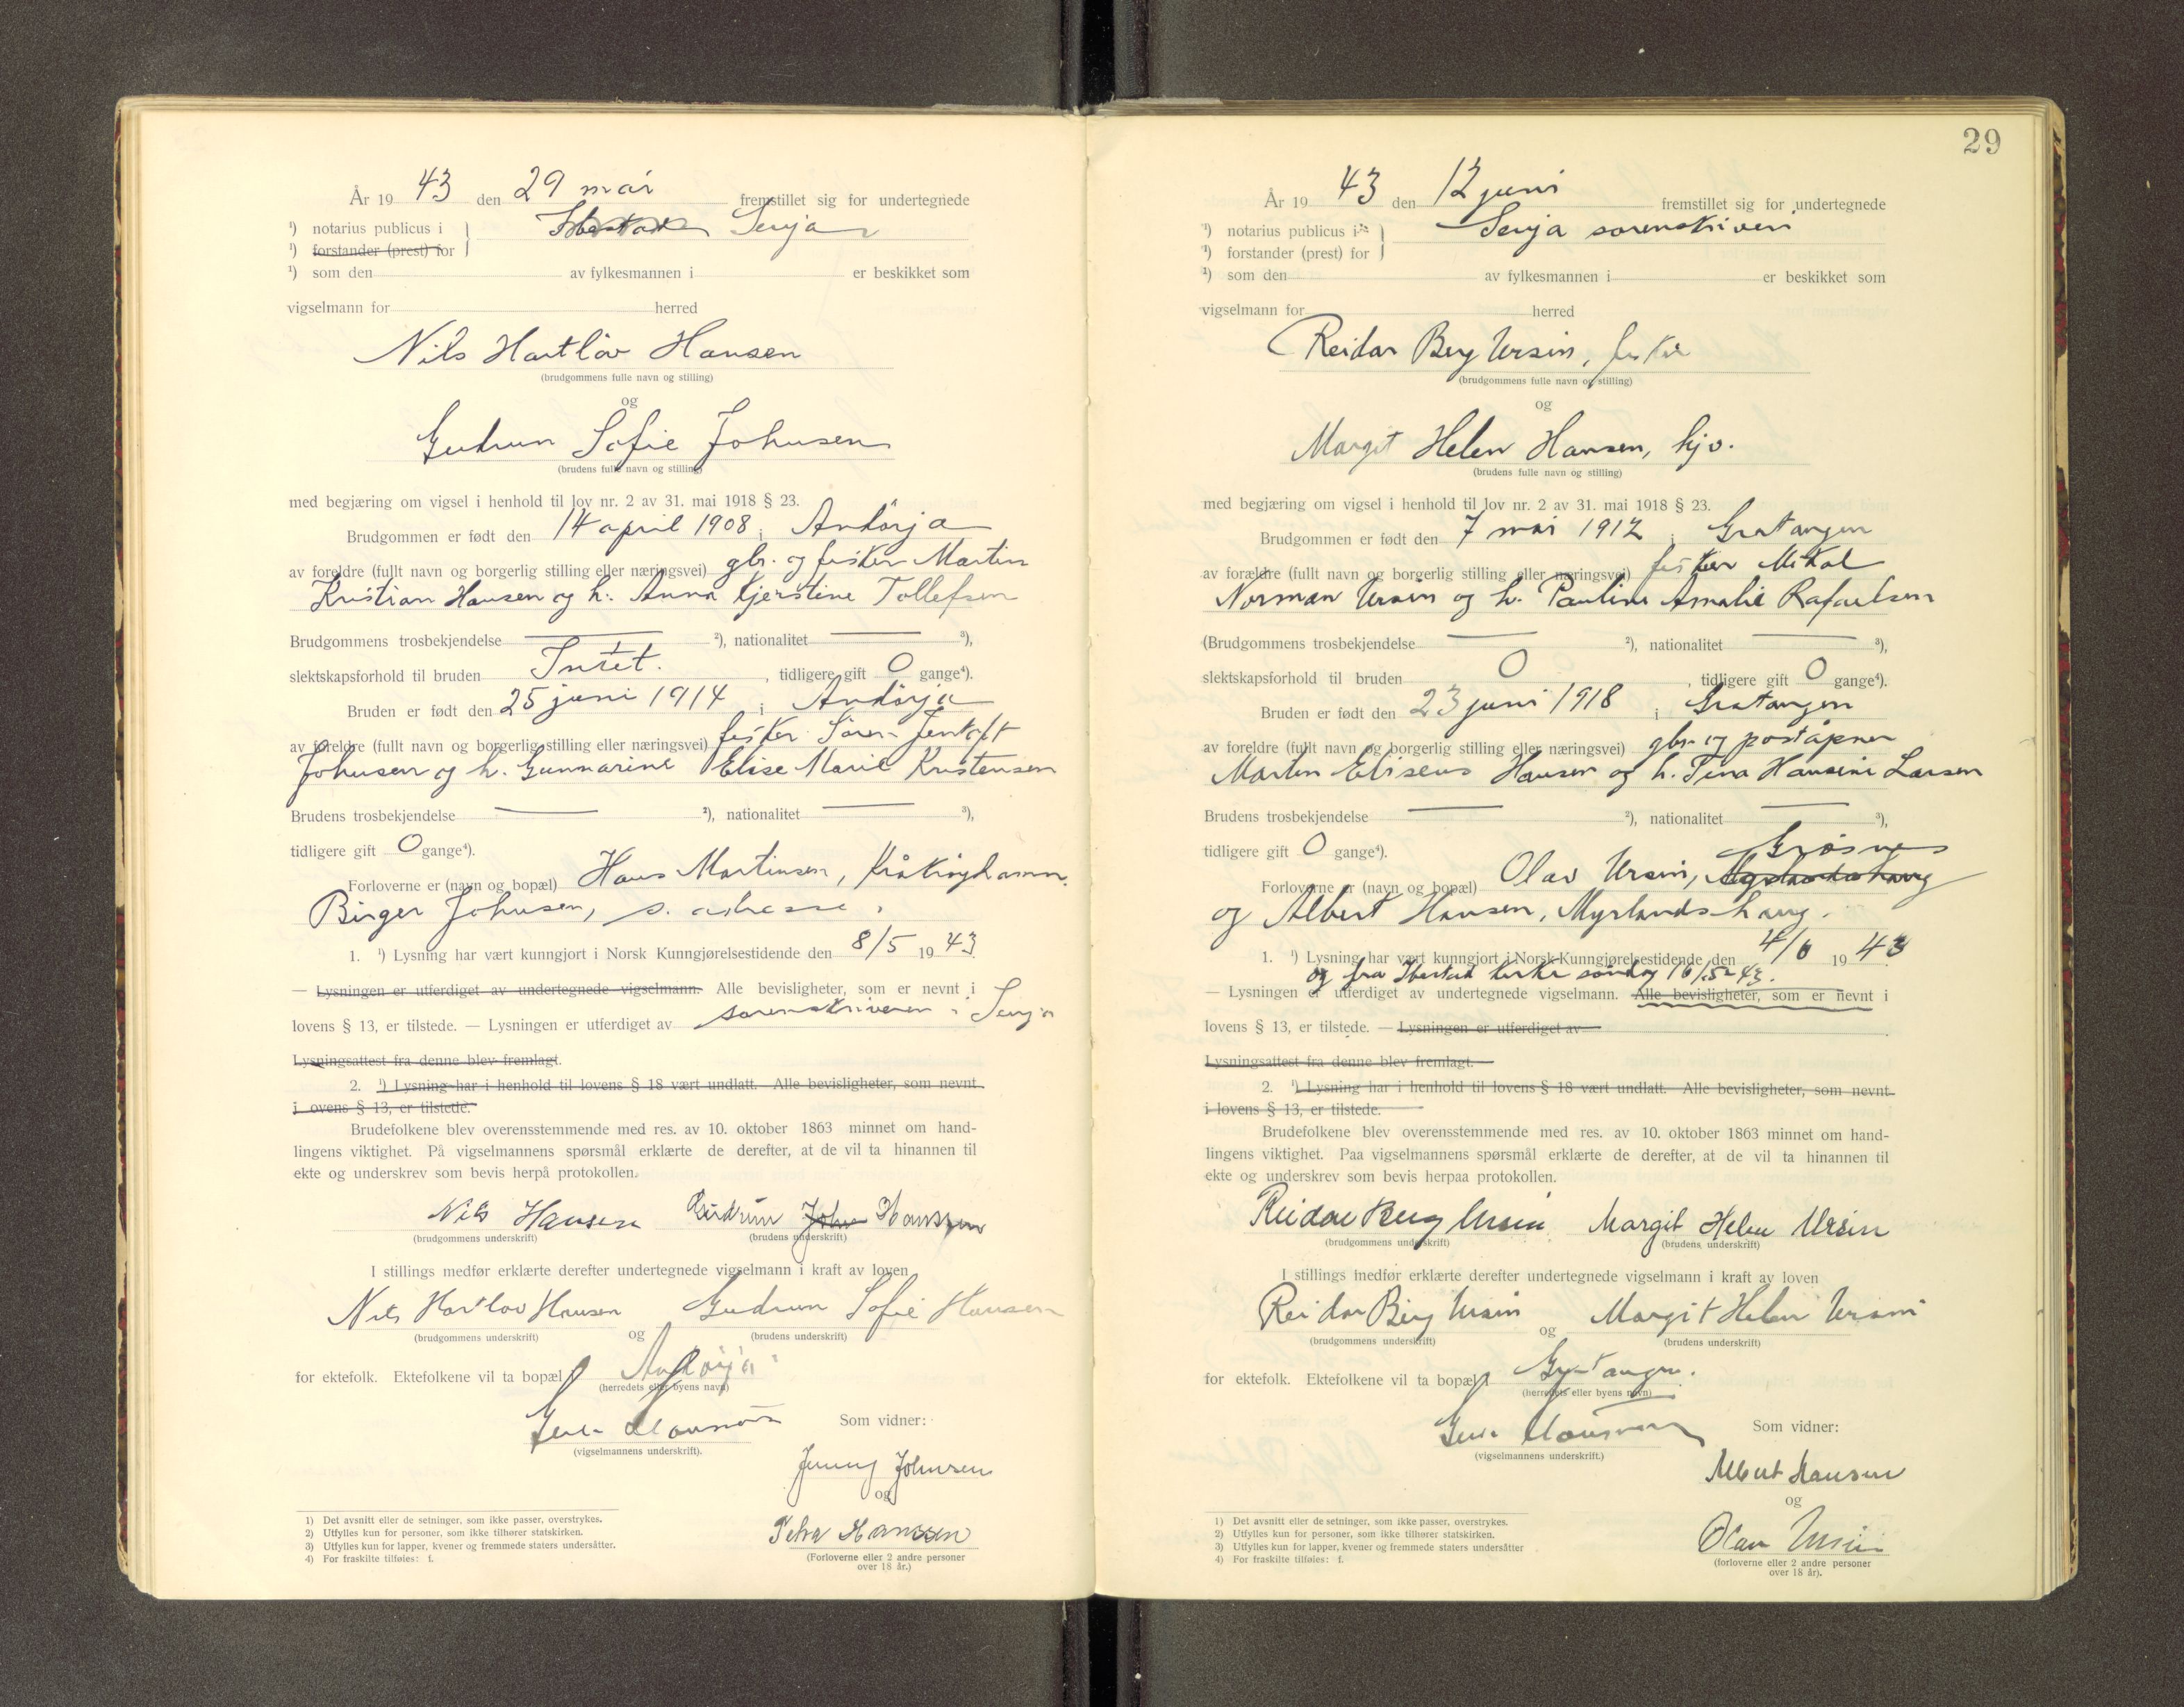 År 19 43 den 29 mai fremstillet sig for undertegnede
¹) notarius publicus i Ibestad Senja
¹) forstander (prest) for
¹) som den av fylkesmannen i er beskikket som
vigselmann for herred
Nils Hartløv Hansen
(brudgommens fulle navn og stilling)
og
Gudrun Sofie Johnsen
(brudens fulle navn og stilling)
med begjæring om vigsel i henhold til lov nr. 2 av 31. mai 1918 § 23.
Brudgommen er født den 14 april 1908 i Andörja
av foreldre (fullt navn og borgerlig stilling eller næringsvei) gbr. og fisker Martin
Kristian Hansen og h. Anna Kjerstine Tollefsen
Brudgommens trosbekjendelse ²), nationalitet ³),
slektskapsforhold til bruden Intet. , tidligere gift 0 gange⁴).
Bruden er født den 25 juni 1914 i Andörja
av foreldre (fullt navn og borgerlig stilling eller næringsvei) fisker Sören Jentoft
Johnsen og h. Gunnarine Elise Marie Kristensen
Brudens trosbekjendelse ²), nationalitet ³),
tidligere gift 0 gange⁴).
Forloverne er (navn og bopæl) Hans Martinsen, Kråkröhamn.
Birger Johnsen, s. adresse.
1. ¹) Lysning har vært kunngjort i Norsk Kunngjørelsestidende den 8/5 19 43
— Lysningen er utferdiget av undertegnede vigselmann. Alle bevisligheter, som er nevnt i
lovens § 13, er tilstede. — Lysningen er utferdiget av sorenskriveren i Senja
Lysningsattest fra denne blev fremlagt.
2. ¹) Lysning har i henhold til lovens § 18 vært undlatt. Alle bevisligheter, som nevnt
i ovens § 13, er tilstede.
Brudefolkene blev overensstemmende med res. av 10. oktober 1863 minnet om hand-
lingens viktighet. På vigselmannens spørsmål erklærte de derefter, at de vil ta hinannen til
ekte og underskrev som bevis herpå protokollen.
Nils Hansen Gudrun John Hanssen
(brudgommens underskrift) (brudens underskrift)
I stillings medfør erklærte derefter undertegnede vigselmann i kraft av loven
Nils Hartlov Hansen Gudrun Sofie Hansen
(brudgommens underskrift) og (brudens underskrift)
for ektefolk. Ektefolkene vil ta bopæl i Andörja
(herredets eller byens navn)
Som vidner:
(vigselmannens underskrift).
Jenny Johnsen
og
Petra Hanssen
(Forloverne eller 2 andre personer
over 18 år.)
1) Det avsnitt eller de setninger, som ikke passer, overstrykes.
2) Utfylles kun for personer, som ikke tilhører statskirken.
3) Utfylles kun for lapper, kvener og fremmede staters undersåtter.
4) For fraskilte tilføies: f.
29
År 19 43 den 12 juni fremstillet sig for undertegnede
¹) notarius publicus i Senja sorenskriveri
¹) forstander (prest) for
¹) som den av fylkesmannen i er beskikket som
vigselmann for herred
Reidar Berg Ursin, fisker
(brudgommens fulle navn og stilling)
og
Margit Helen Hansen, hjv.
(brudens fulle navn og stilling)
med begjæring om vigsel i henhold til lov nr. 2 av 31. mai 1918 § 23.
Brudgommen er født den 7 mai 1912 i Gratangen
av forældre (fullt navn og borgerlig stilling eller næringsvei) fisker Mikal
Norman Ursin og h. Pauline Amalie Rafaelsen
(Brudgommens trosbekjendelse ²), nationalitet ³),
slektskapsforhold til bruden 0 , tidligere gift 0 gange⁴).
Bruden er født den 23 juni 1918 i Gratangen
av foreldre (fullt navn og borgerlig stilling eller næringsvei) gbr. og poståpner
Martin Eliseus Hansen og h. Tina Hansine Larsen
Brudens trosbekjendelse ²), nationalitet ³),
tidligere gift 0 gange⁴).
Grösnes
Forloverne er (navn og bopæl) Olav Ursin,
og Albert Hansen, Myrlandshaug.
1. ¹) Lysning har vært kunngjort i Norsk Kunngjørelsestidende den 4/6 19 43
og fra Ibestad kirke söndag 16/5 - 43.
— Lysningen er utferdiget av undertegnede vigselmann. Alle bevisligheter, som er nevnt i
lovens § 13, er tilstede. — Lysningen er utferdiget av
Lysningsattest fra denne blev fremlagt.
2. ¹) Lysning har i henhold til lovens § 18 vært undlatt. Alle bevisligheter, som nevnt
i lovens § 13, er tilstede.
Brudefolkene blev overensstemmende med res. av 10. oktober 1863 minnet om hand-
lingens viktighet. Paa vigselmannens spørsmål erklærte de derefter, at de vil ta hinannen til
ekte og underskrev som bevis herpaa protokollen.
Reidar Berg Ursin Margit Helen Ursin
(brudgommens underskrift) (brudens underskrift)
I stillings medfør erklærte derefter undertegnede vigselmann i kraft av loven
Reidar Berg Ursin Margit Helen Ursin
(brudgommens underskrift) og (brudens underskrift)
for ektefolk. Ektefolkene vil ta bopæl i Gratangen.
(herredets eller byens navn)
Som vidner:
(vigselmannens underskrift.)
Albert Hansen
og
Olav Ursin
(forloverne eller 2 andre personer
over 18 år).
1) Det avsnitt eller de setninger, som ikke passer, overstrykes.
2) Utfylles kun for personer, som ikke tilhører statskirken.
3) Utfylles kun for lapper, kvener og fremmede staters undersåtter
4) For fraskilte tilføies: f.